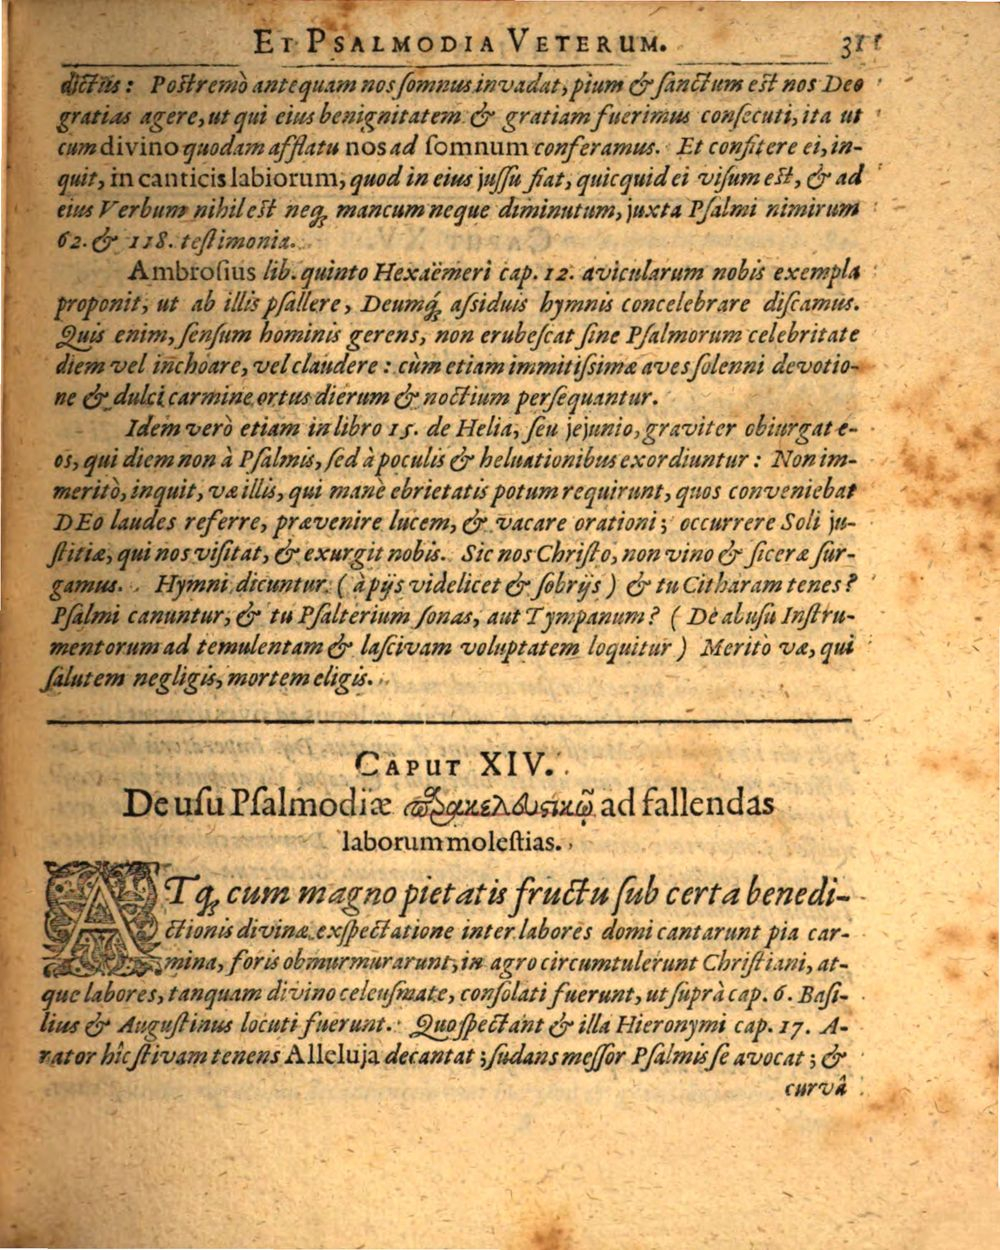 ET PSALMODIA VETERUM. 311
dictus: Postremò antequam nos somnus invadat, pium & sanctum est nos Deo
gratias agere, ut qui eius benignitatem & gratiam fuerimus consecuti, ita ut
cum divino quodam afflatu nos ad somnum conferamus. Et confitere ei, in-
quit, in canticis labiorum, quod in eius jussu fiat, quicquid ei visum est, & ad
eius Verbum nihil est neq; mancum neque diminutum, juxta Psalmi nimirum
62. & 118. testimonia.
Ambrosius lib. quinto Hexaëmeri cap. 12. avicularum nobis exempla
proponit, ut ab illis psallere, Deumq́; assiduis hymnis concelebrare discamus.
Quis enim, sensum hominis gerens, non erubescat sine Psalmorum celebritate
diem vel inchoare, vel claudere: cùm etiam immitissimæ aves solenni devotio-
ne & dulci carmine ortus dierum & noctium persequantur.
Idem verò etiam in libro 15. de Helia, seu jejunio, graviter obiurgat e-
os, qui diem non à Psalmis, sed à poculis & heluationibus exordiuntur: Non im-
meritò, inquit, væ illis, qui manè ebrietatis potum requirunt, quos conveniebat
DEo laudes referre, prævenire lucem, & vacare orationi; occurrere Soli ju-
stitiæ, qui nos visitat, & exurgit nobis. Sic nos Christo, non vino & siceræ sur-
gamus. Hymni dicuntur (à pijs videlicet & sobrijs) & tu Citharam tenes?
Psalmi canuntur, & tu Psalterium sonas, aut Tympanum? (De abusu Instru-
mentorum ad temulentam & lascivam voluptatem loquitur) Meritò væ, qui
salutem negligis, mortem eligis.
CAPUT XIV.
De usu Psalmodiæ ad fallendas
laborum molestias.
ATq; cum magno pietatis fructu sub certa benedi-
ctionis divinæ exspectatione inter labores domi cantarunt pia car-
mina, foris obmurmurarunt, in agro circumtulerunt Christiani, at-
que labores, tanquam divino celeusmate, consolati fuerunt, ut suprà cap. 6. Basi-
lius & Augustinus locuti fuerunt. Quo spectant & illa Hieronymi cap. 17. A-
rator hîc stivam tenens Alleluja decantat; sudans messor Psalmis se avocat; &
curvâ